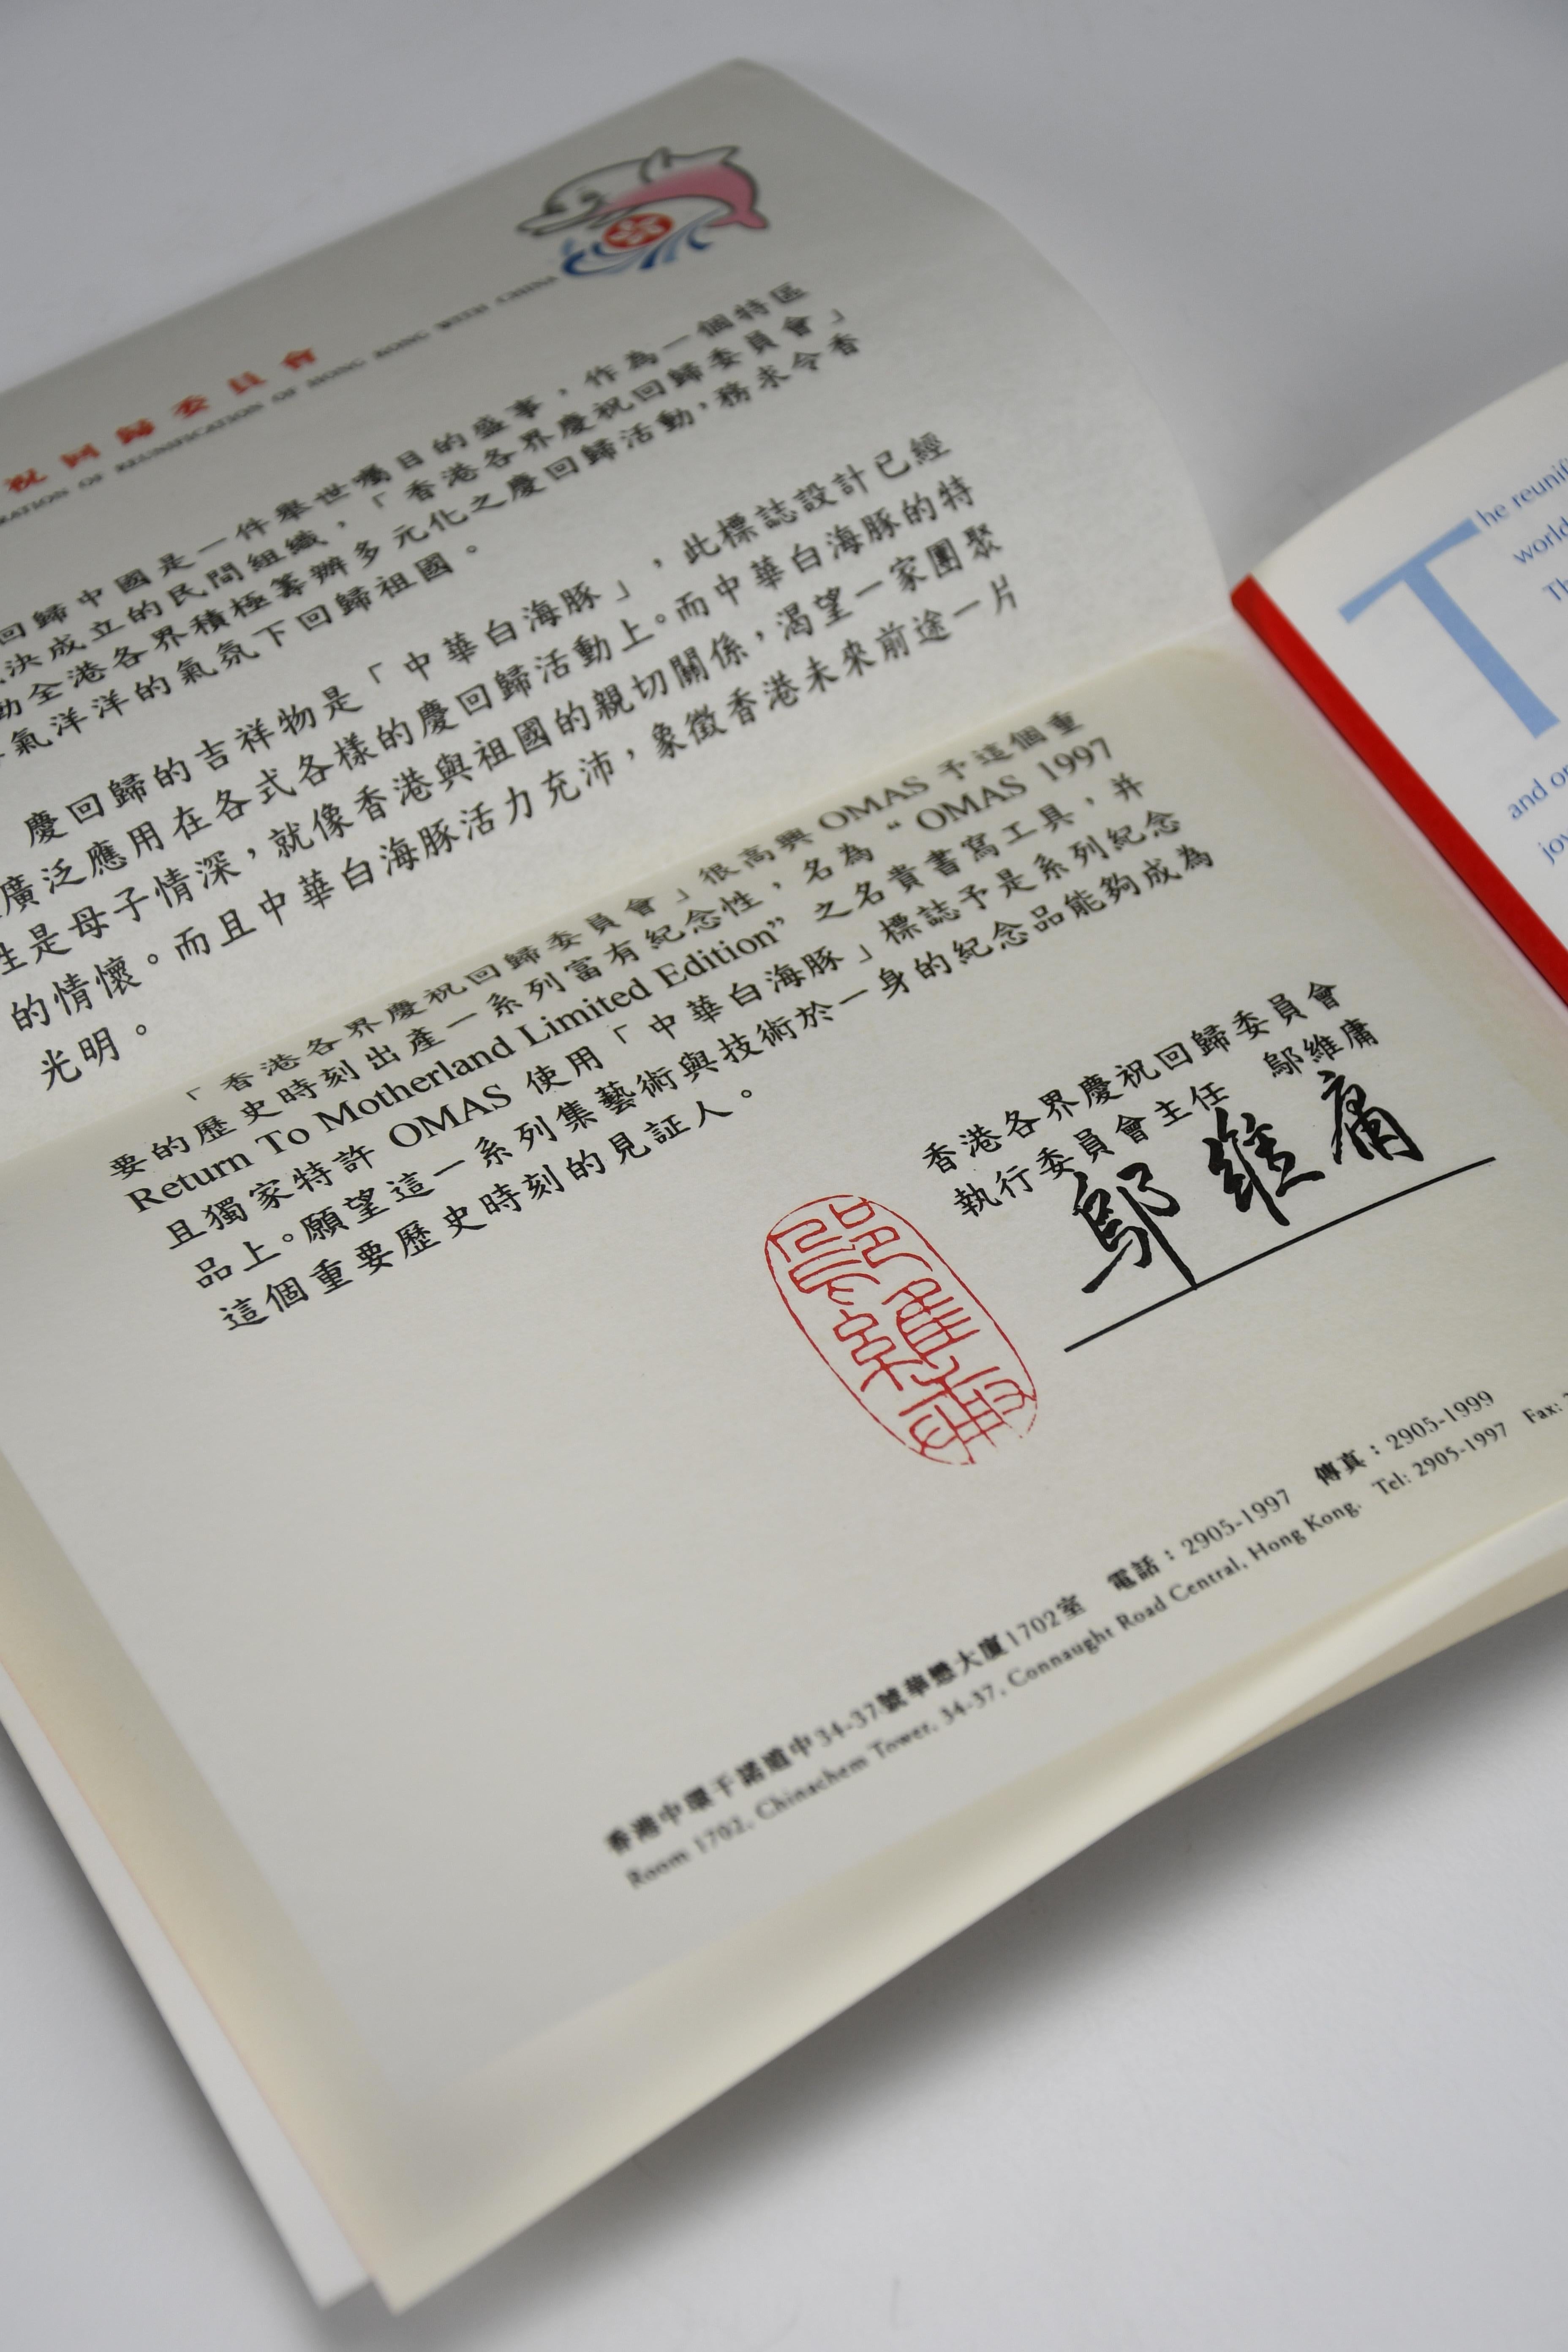 祝回歸委員會
RATION OF REUNIFICATION OF HONG KONG WITH CHINA
回歸中國是一件舉世囑目的盛事，作為一個特區
決成立的民間組織，「香港各界慶祝回歸委員會」
動全港各界積極籌辦多元化之慶回歸活動，務求令香
氣洋洋的氣氛下回歸祖國。
慶回歸的吉祥物是「中華白海豚」，此標誌設計已經
廣泛應用在各式各樣的慶回歸活動上。而中華白海豚的特
性是母子情深，就像香港與祖國的親切關係，渴望一家團聚
的情懷。而且中華白海豚活力充沛，象徵香港未來前途一片
光明。
「香港各界慶祝回歸委員會」很高興 OMAS 予這個重
要的歷史時刻出產一系列富有紀念性，名為 “ OMAS 1997
Return To Motherland Limited Edition” 之名貴書寫工具，并
且獨家特許 OMAS 使用「中華白海豚」標誌予是系列紀念
品上。願望這一系列集藝術與技術於一身的紀念品能夠成為
這個重要歷史時刻的見証人。
香港各界慶祝回歸委員會
執行委員會主任 鄔維庸
鄔維庸
鄔維庸
香港中環干諾道中34-37號華懋大廈1702室 電話：2905-1997 傳真：2905-1999
Room 1702, Chinachem Tower, 34-37, Connaught Road Central, Hong Kong. Tel: 2905-1997 Fax:
The reunifi
world
Th
and o
joy